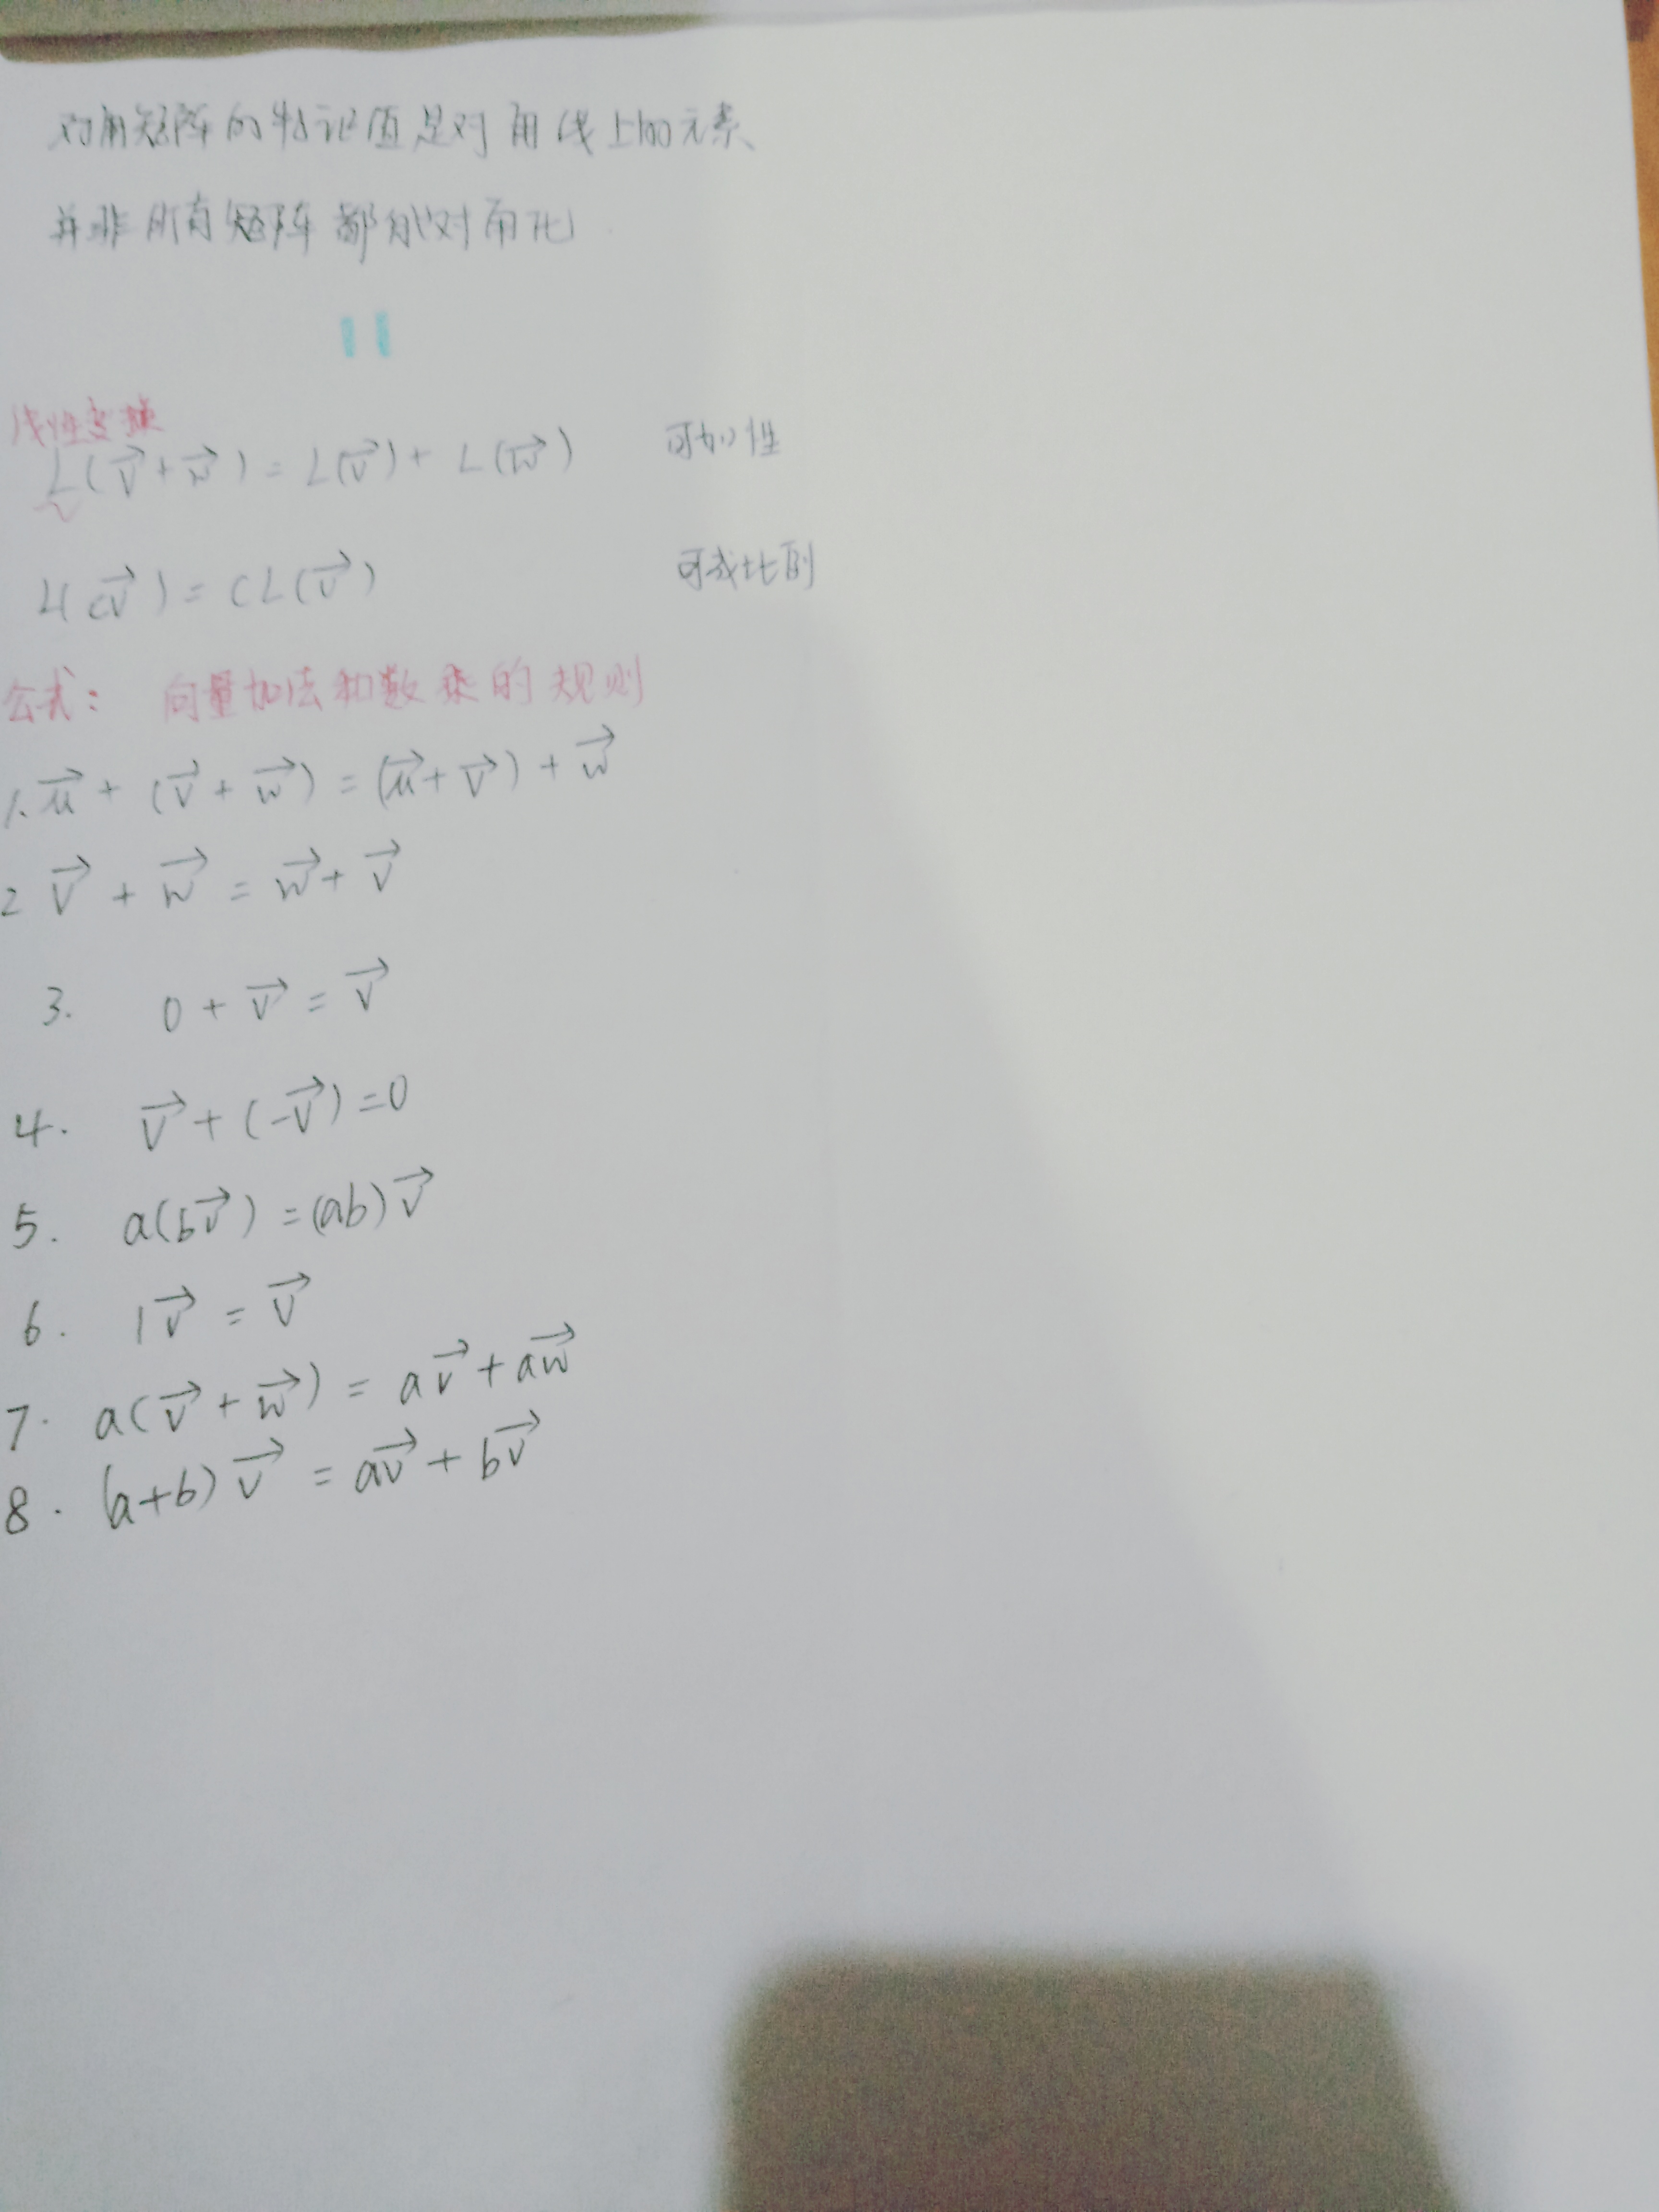 对角矩阵的特征值是对角线上的元素
并非所有矩阵都能对角化
11
线性变换
L(v⃗+w⃗)=L(v⃗)+L(w⃗) 可加性
L(cv⃗)=cL(v⃗) 可成比例
公式: 向量加法和数乘的规则
1. u⃗+(v⃗+w⃗)=(u⃗+v⃗)+w⃗
2 v⃗+w⃗=w⃗+v⃗
3. 0+v⃗=v⃗
4. v⃗+(-v⃗)=0
5. a(bv⃗)=(ab)v⃗
6. 1v⃗=v⃗
7. a(v⃗+w⃗)=av⃗+aw⃗
8. (a+b)v⃗=av⃗+bv⃗